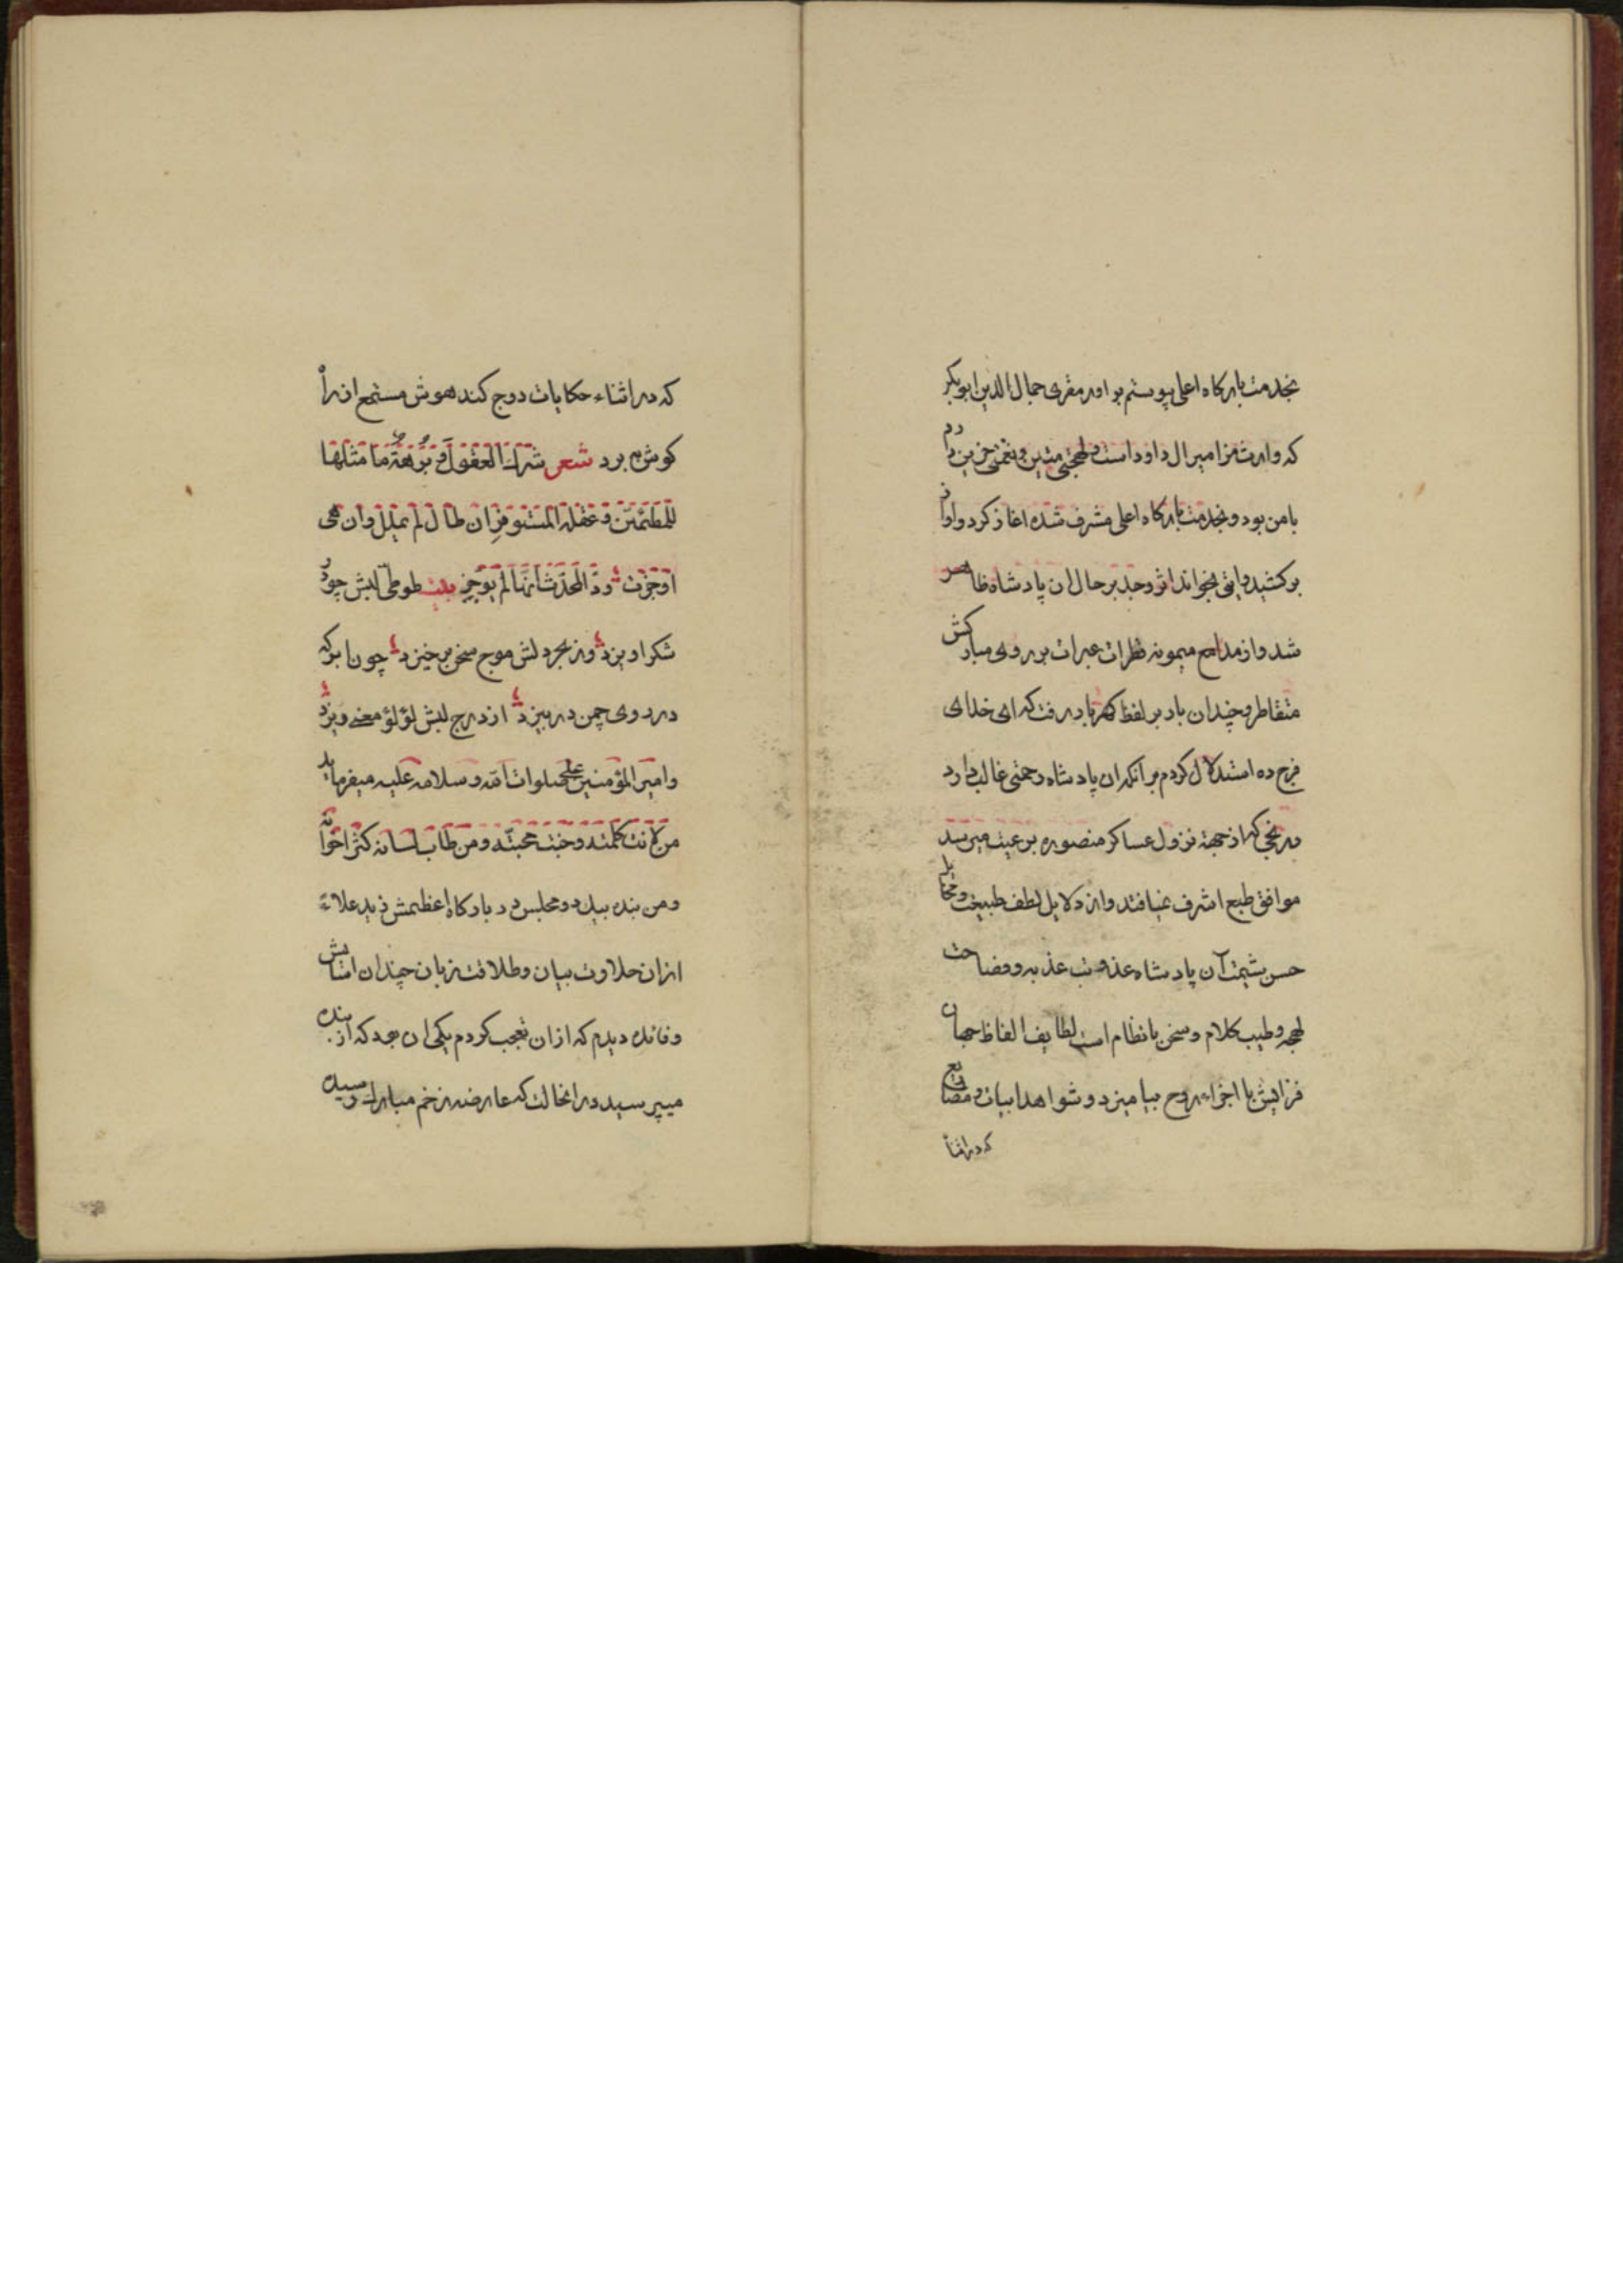 بخدمت بارکاه اعلی پیوستم برادر مقری جمال الدین ابوبکر
که وارث مزامیر ال داود است و لهجتی متین و نغمتی حزین دارد
بامن بود و بخدمت بارکاه اعلی مشرف شده اغاز کرد و اواز
برکشید وایتی بخواند اثر وجد بر حال ان پادشاه ظاهر
شد و از مدامع میمونه قطرات عبرات بر روی مبارکش
متقاطر و چندان بار بر لفظ کهربار رفت که ای خدای
فرج ده استدلال کردم بر آنکه ان پادشاه رحمتی غالب دارد
و رنجی که از جهة نزول عساکر منصوره بر عیت میرسد
موافق طبع اشرف نمیافتد و از دلایل لطف طبیعت و مخایل
حسن شیمت آن پادشاه عذوبت عذبه و فصاحت
لهجه و طیب کلام و سخن بانظام است لطایف الفاظ جهان
فزایش با اجزاء روح بیامیزد و شواهد ابیات و مصاریع
که در اثنأ
که در اثناء حکایات درج کند هوش مستمع از راه
کوش ببرد شعر شرك العقول و نزهة ما مثلها
للمطمئن و عقلة المستوفز ان طال لم یملل وان هی
اوجزت ودّ المحدّث انّها لم توجز بیت طوطی لبش چو در
شکر اویزد وز بحر دلش موج سخن برخیزد چون ابر که
در روی چمن در بیزد از درج لبش لؤلؤ معنی ریزد
و امیر المؤمنین علی صلوات الله و سلامه علیه میفرماید
من لانت کلمته وجبت محبته ومن طاب لسانه کثر اخوانه
و من بنده بیدو و مجلس در بارکاه اعظمش زید علاءً
ازان حلاوت بیان و طلاقت زبان چندان اسایش
و فائده دیدم که ازان تعجب کردم یکی ان بود که از بنده
میپرسید در انحالت که عارضه زخم مبارک رسیده